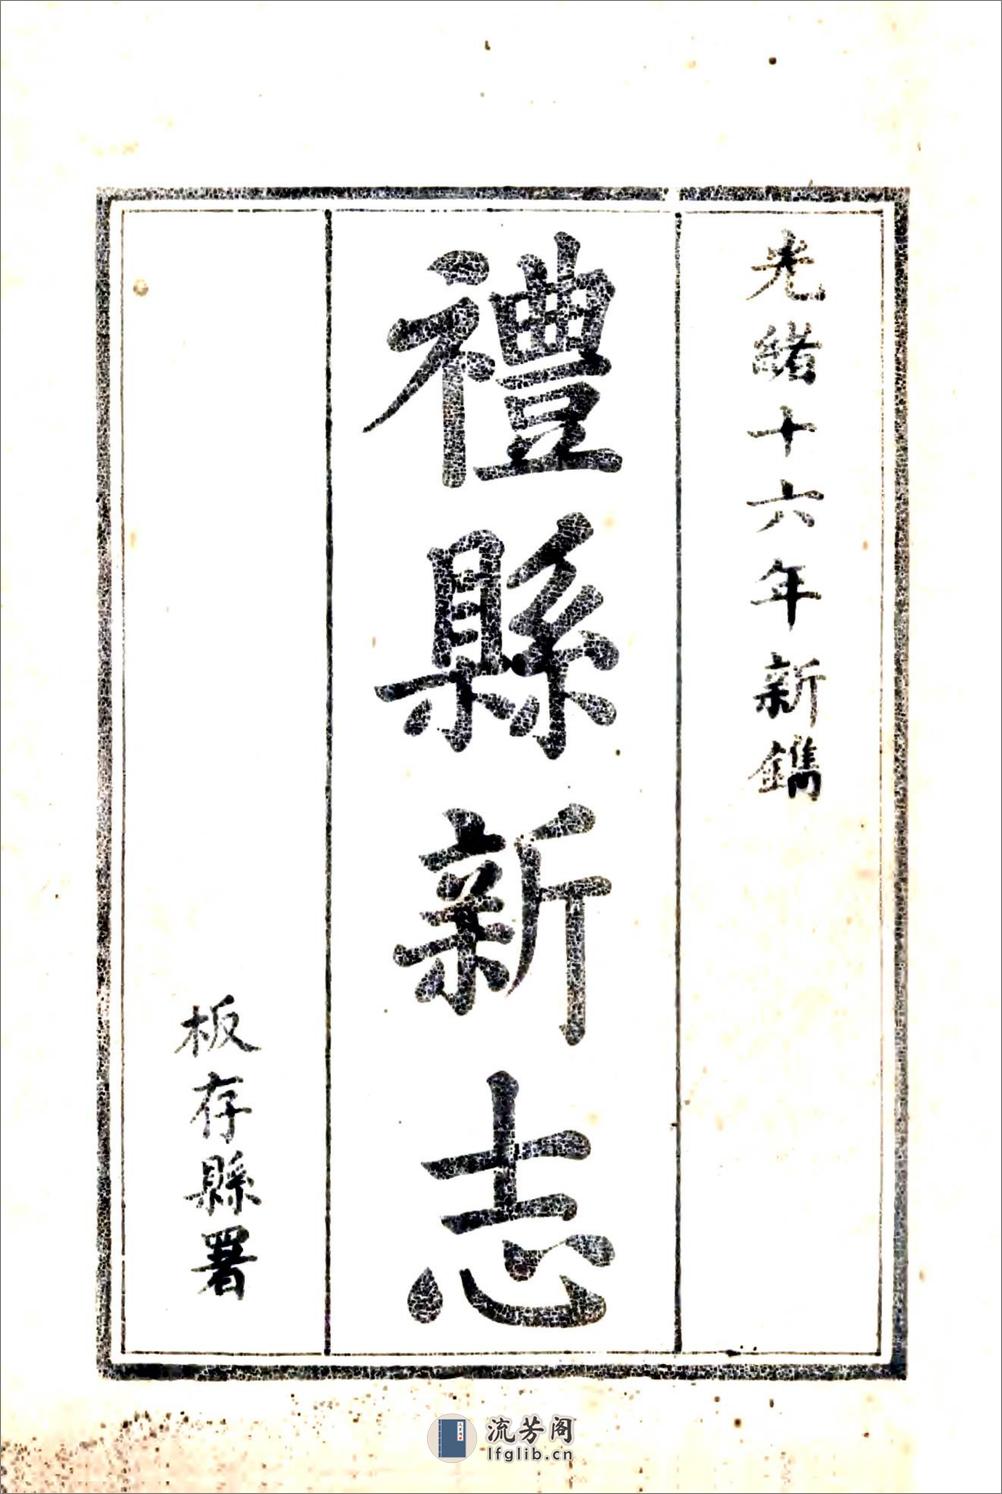 光緒十六年新鐫
禮縣新志
板存縣署
流芳阁
lfglib.cn